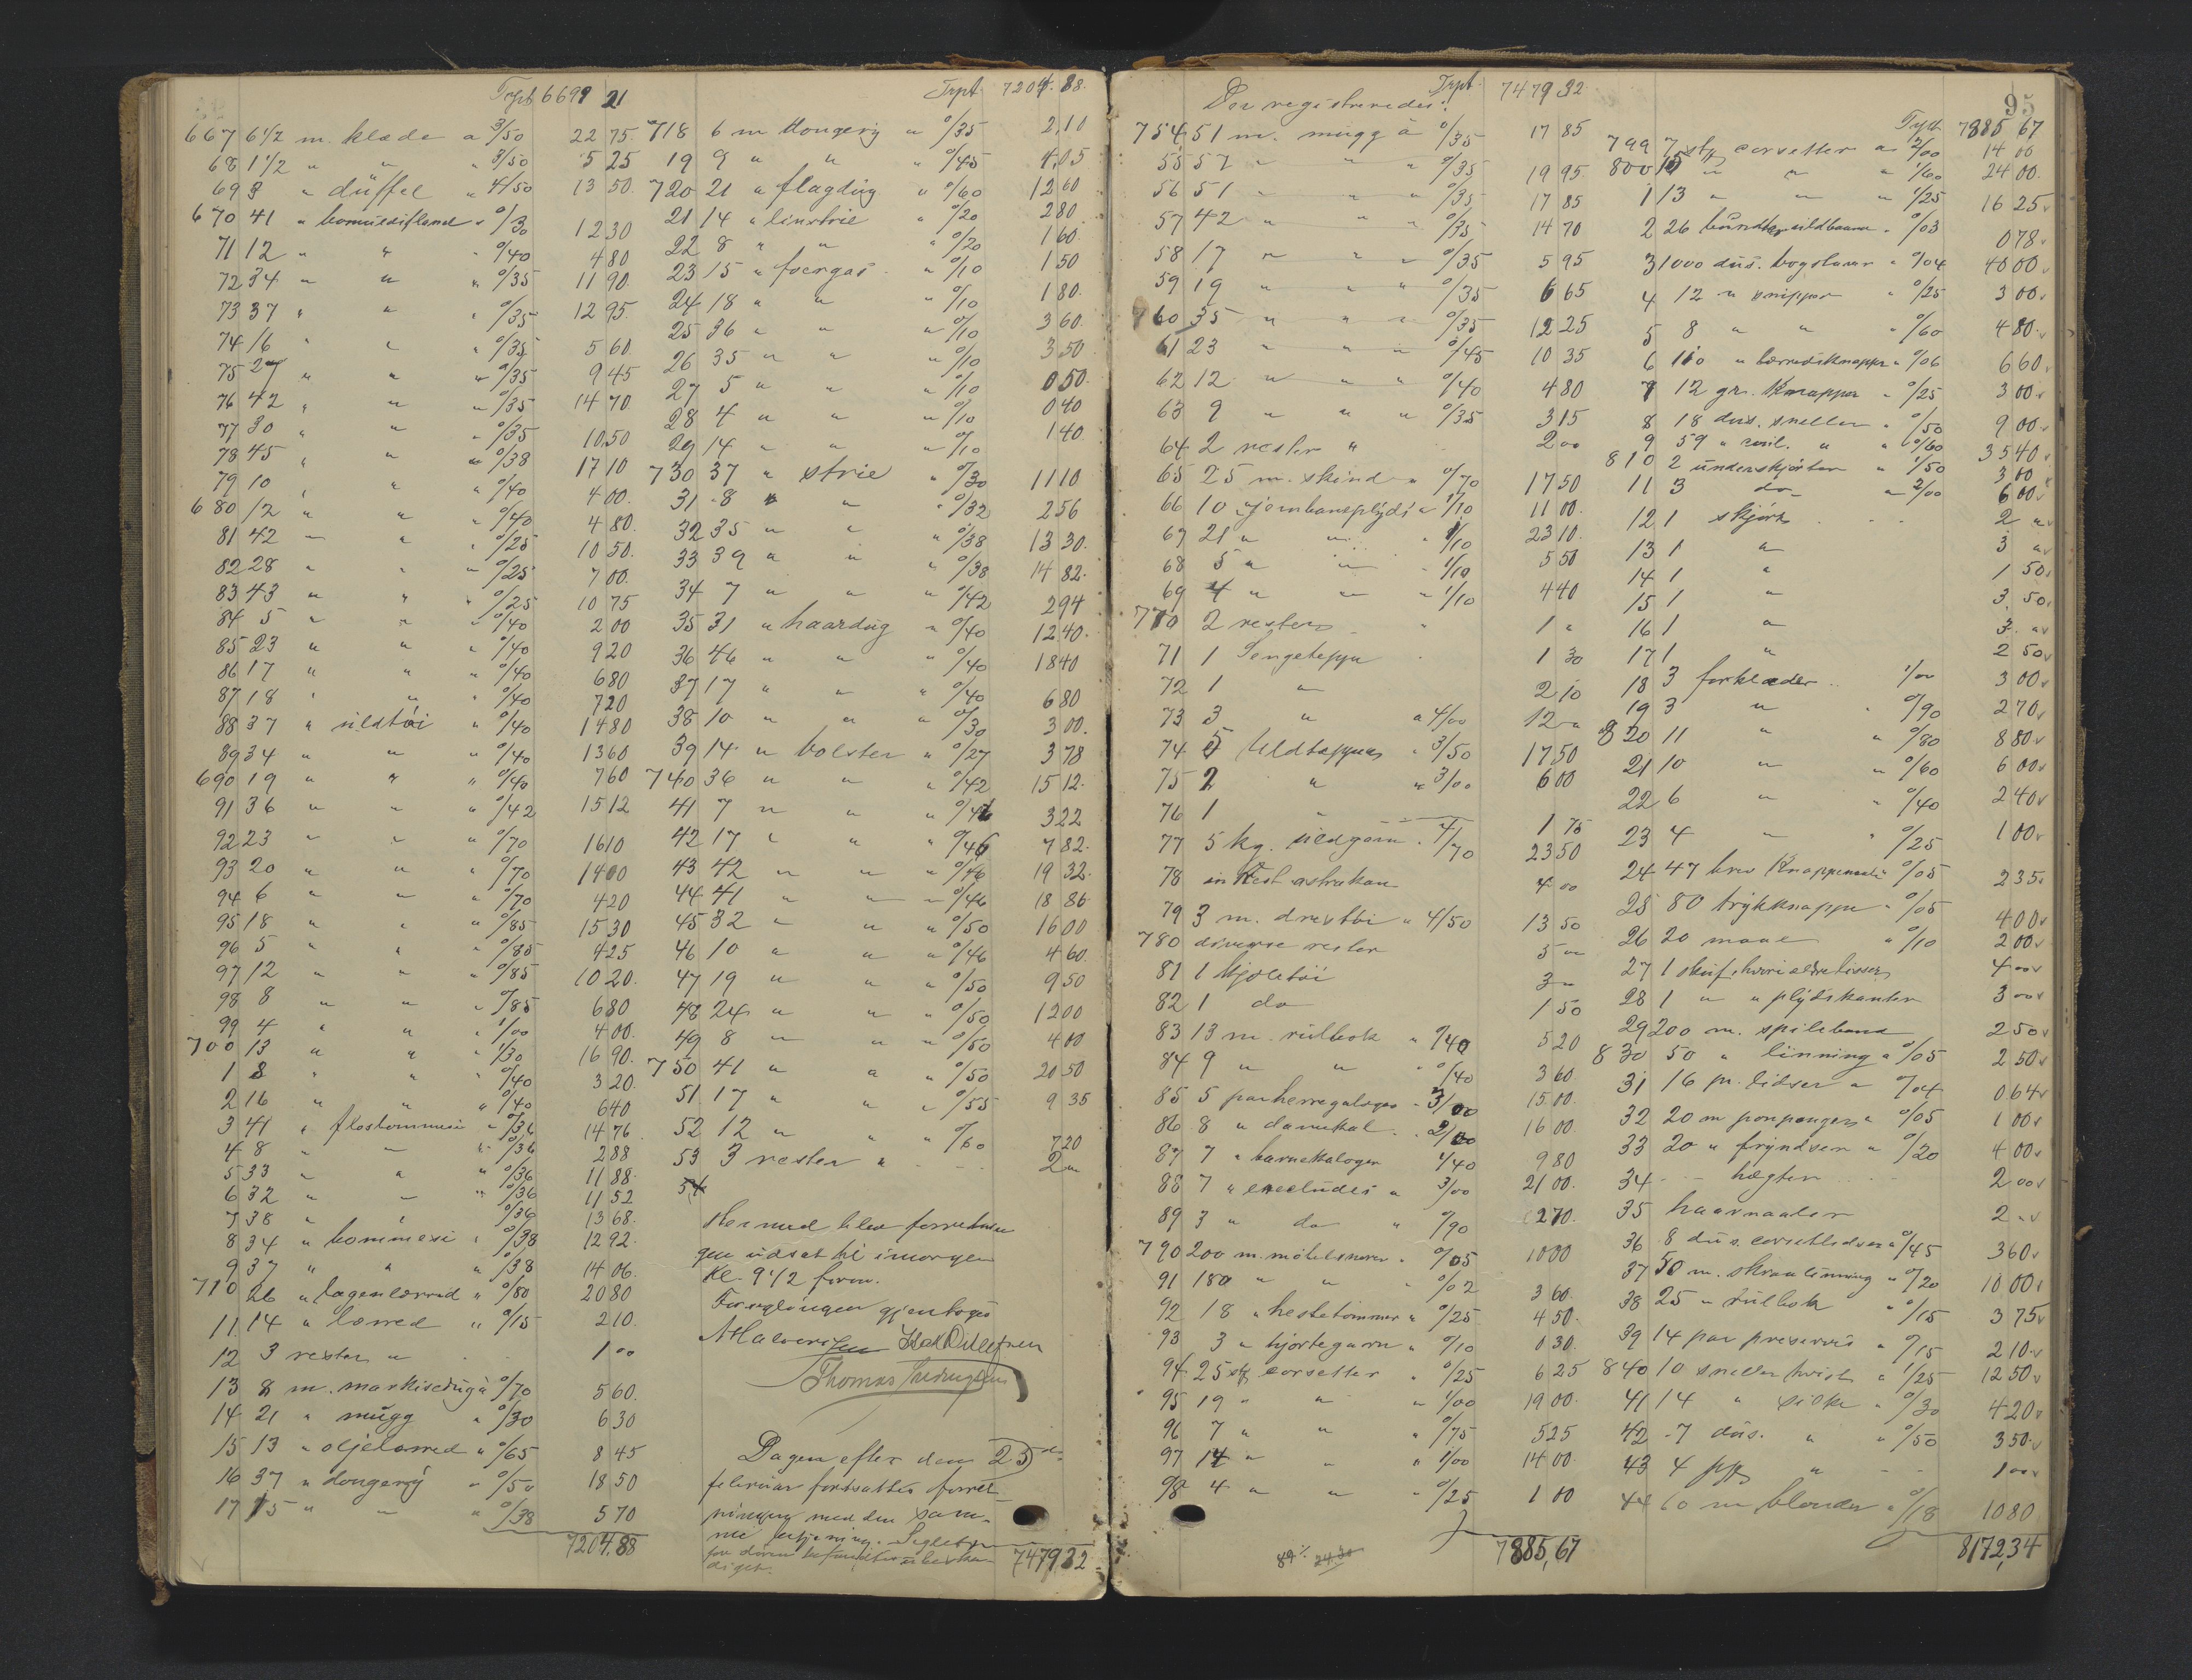 Trpt 6699 21
667 6 1/2 m. klæde a 3/50 22 75
68 1 1/2 " " " 3/50 5 25
69 3 " düffel " 4/50 13 50
670 41 " bomuldsflanel " 0/30 12 30
71 12 " " " 0/40 4 80
72 34 " " " 0/35 11 90
73 37 " " " 0/35 12 95
74 16 " " " 0/35 5 60
75 27 " " " 0/35 9 45
76 42 " " " 0/35 14 70
77 30 " " " 0/35 10 50
78 45 " " " 0/38 17 10
79 10 " " " 0/40 4 00
680 12 " " " 0/40 4 80
81 42 " " " 0/25 10 50
82 28 " " " 0/25 7 00
83 43 " " " 0/25 10 75
84 5 " " " 0/40 2 00
85 23 " " " 0/40 9 20
86 17 " " " 0/40 6 80
87 18 " " " 0/40 7 20
88 37 " uldtöi " 0/40 14 80
89 34 " " " 0/40 13 60
690 19 " " " 0/40 7 60
91 36 " " " 0/42 15 12
92 23 " " " 0/70 16 10
93 20 " " " 0/70 14 00
94 6 " " " 0/70 4 20
95 18 " " " 0/85 15 30
96 5 " " " 0/85 4 25
97 12 " " " 0/85 10 20
98 8 " " " 0/85 6 80
99 4 " " " 1/00 4 00
700 13 " " " 1/30 16 90
1 8 " " " 0/40 3 20
2 16 " " " 0/40 6 40
3 41 " " 0/36 14 76
4 8 " " " 0/36 2 88
5 33 " " " 0/36 11 88
6 32 " " " 0/36 11 52
7 38 " " " 0/36 13 68
8 34 " " 0/38 12 92
9 37 " " " 0/38 14 06
710 26 " lagenlærred " 0/80 20 80
11 14 " lærred " 0/15 2 10
12 3 rester " 1 00
13 8 m. markisedug à 0/70 5 60
14 21 " mugg " 0/30 6 30
15 13 " oljelærred " 0/65 8 45
16 37 " dongery " 0/50 18 50
17 15 " " " 0/38 5 70
7204,88
Trpt. 7204.88
718 6 m dongery a 0/35 2,10
19 9 " " " 0/45 4,05
720 21 " flagdug " 0/60 12 60
21 14 " linstrie " 0/20 2 80
22 8 " " " 0/20 1 60
23 15 " foergas " 0/10 1 50
24 18 " " " 0/10 1 80
25 36 " " " 0/10 3 60
26 35 " " " 0/10 3 50
27 5 " " " 0/10 0 50
28 4 " " " 0/10 0 40
29 14 " " " 0/10 1 40
730 37 " strie " 0/30 11 10
31 8 " " " 0/32 2 56
32 35 " " " 0/38 13 30
33 39 " " " 0/38 14 82
34 7 " " " 0/42 2 94
35 31 " haardug " 0/40 12 40
36 46 " " " 0/40 18 40
37 17 " " " 0/40 6 80
38 10 " " " 0/30 3 00
39 14 " bolster " 0/27 3 78
740 36 " " " 0/42 15 12
41 7 " " " 0/46 3 22
42 17 " " " 0/46 7 82
43 42 " " " 0/46 19 32
44 41 " " " 0/46 18 86
45 32 " " " 0/50 16 00
46 10 " " " 0/46 4 60
47 19 " " " 0/50 9 50
48 24 " " " 0/50 12 00
49 8 " " " 0/50 4 00
750 41 " " " 0/50 20 50
51 17 " " " 0/55 9 35
52 12 " " " 0/60 7 20
53 3 rester " 2 "
54
Hermed blev forretnin
gen udsat til imorgen
Kl. 9 1/2 form.
Forseglingen gjentoges
Thomas
Dagen efter den 23de
februar fortsattes forret-
ningen med den sam-
me betjening. Seglet
for døren befandtes ubeska-
diget.
7479,32
Trpt. 7479 32
Der registreredes:
754 51 m. mugg à 0/35 17 85
55 57 " " " 0/35 19 95
56 51 " " " 0/35 17 85
57 42 " " " 0/35 14 70
58 17 " " " 0/35 5 95
59 19 " " " 0/35 6 65
760 35 " " " 0/35 12 25
61 23 " " " 0/45 10 35
62 12 " " " 0/40 4 80
63 9 " " " 0/35 3 15
64 2 rester " 2 00
65 25 m. skind " 0/70 17 50
66 10 " jernbaneplyds " 1/10 11 00
67 21 " " " 1/10 23 10
68 5 " " " 1/10 5 50
69 4 " " " 1/10 4 40
770 2 rester " 1 "
71 1 Sengeteppe 1 30
72 1 " 2 10
73 3 " a 4/00 12 "
74 5 Uldtæpper " 3/50 17 50
75 2 " " 3/00 6 00
76 1 " 1 75
77 5 kg. uldgarn " 4/70 23 50
78 en Rest astrakan 4 00
79 3 m. drestöi " 4/50 13 50
780 diverse rester 5 "
81 1 kjoletöi 3 "
82 1 do 1 50
83 13 m. rulbok " 0/40 5 20
84 9 " " " 0/40 3 60
85 5 par herregaloger " 3/00 15 00
86 8 " damekal. " 2/00 16 00
87 7 " barnekaloger 1/40 9 80
88 7 " " 3/00 21 00
89 3 " do " 0/90 2 70
790 200 m. möbelsnorer " 0/05 10 00
91 180 " " " 0/02 3 60
92 18 " hestetömmer " 0/25 4 50
93 3 " hjortegarn " 0/10 0 30
94 25 stk corsetter " 0/25 6 25
95 19 " " " 1/00 19 00
96 7 " " " 0/75 5 25
97 14 " " " 1/00 14 00
98 4 " " " 0/25 1 00
7885,67
95
Trpt. 7885 67
799 7 stk corsetter a 2/00 14 00
800 15 " " " 1/60 24 00
1 13 " " " 1/25 16 25
2 26 bundter uldbaand " 0/03 0 78
3 1000 dus. bogstaver " 0/04 40 00
4 12 " snipper " 0/25 3 00
5 8 " " " 0/60 4 80
6 110 " lærredsknapper " 0/06 6 60
7 12 gr. Knapper " 0/25 3 00
8 18 dus. sneller " 0/50 9 00
9 59 " " " 0/60 35 40
810 2 underskjörter " 1/50 3 00
11 3 do " 2/00 6 00
12 1 skjört 2 "
13 1 " 3 "
14 1 " 1 50
15 1 " 3 50
16 1 " 3 "
17 1 " 2 50
18 3 forklæder 1/00 3 00
19 3 " " 0/90 2 70
820 11 " " 0/80 8 80
21 10 " " 0/60 6 00
22 6 " " 0/40 2 40
23 4 " " 0/25 1 00
24 47 brev Knappenaale 0/05 2 35
25 80 trykknapper " 0/05 4 00
26 20 " 0/10 2 00
27 1 skuf 4 00
28 1 " " plydskanter 3 00
29 200 m. spilebaand 2 50
830 50 " linning " 0/05 2 50
31 16 pr. lidser " 0/04 0 64
32 20 m ponponger " 0/05 1 00
33 20 " fryndser " 0/20 4 00
34 hægter 2 00
35 haarnaaler 2 "
36 8 dus. corsetlidser " 0/45 3 60
37 50 m. skraalinning " 0/20 10 00
38 25 " rulbok " 0/15 3 75
39 14 par preservis " 0/15 2 10
840 10 sneller tvist " 1/25 12 50
41 14 " silke " 0/30 4 20
42 7 dus. " " 0/50 3 50
43 4 " 1 00
44 60 m blonder " 0/18 10 80
8172,34